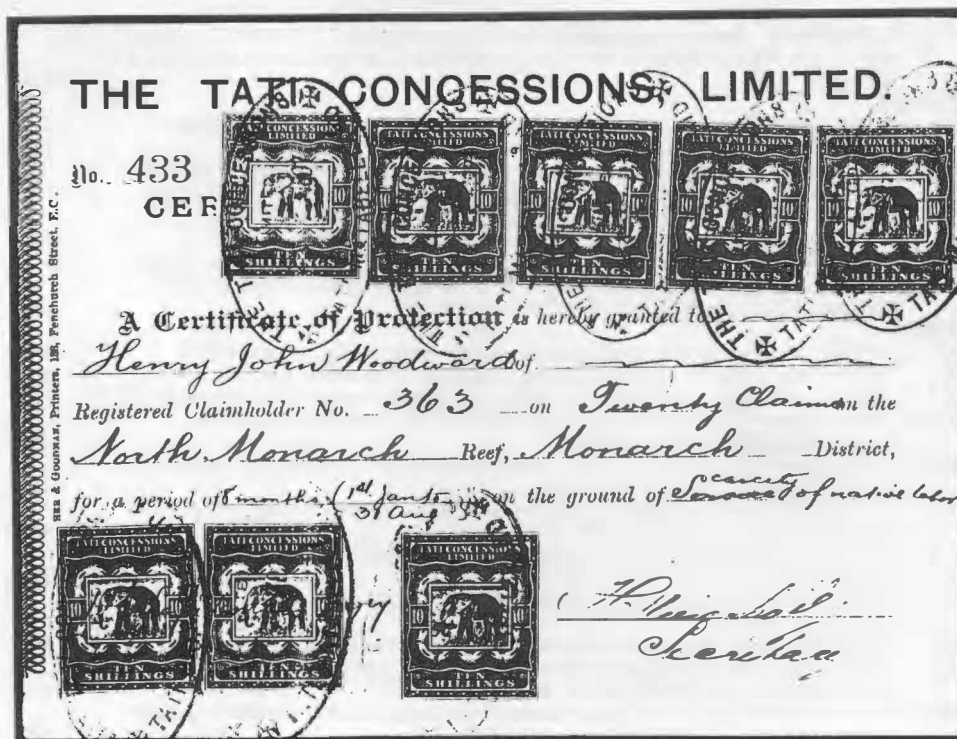 THE TATI CONCESSIONS, LIMITED.
TATI CONCESSIONS LIMITED 10 10 TEN SHILLINGS
TATI CONCESSIONS LIMITED 10 10 TEN SHILLINGS
TATI CONCESSIONS LIMITED 10 10 TEN SHILLINGS
TATI CONCESSIONS LIMITED 10 10 TEN SHILLINGS
TATI CONCESSIONS LIMITED 10 10 TEN SHILLINGS
No. 433
CER
A Certificate of Protection is hereby granted to
Henry John Woodward of
Registered Claimholder No. 363 on Twenty Claims on the
North Monarch Reef, Monarch District,
for a period of 8 months (1st Jan to 31 Aug on the ground of scarcity of native labor
TATI CONCESSIONS LIMITED 10 10 SHILLINGS
TATI CONCESSIONS LIMITED 10 10 SHILLINGS
TATI CONCESSIONS LIMITED 10 TEN SHILLINGS
& GOODMAN, Printers, Fenchurch Street, E.C.